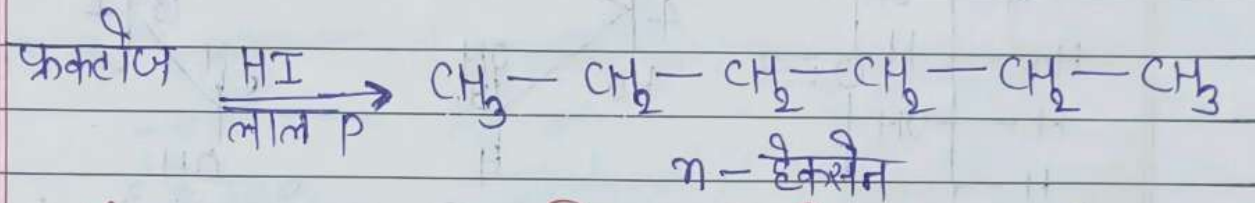 फ्रक्टोज HI CH₃ — CH₂ — CH₂ — CH₂ — CH₂ — CH₃
लाल P
n - हेक्सेन